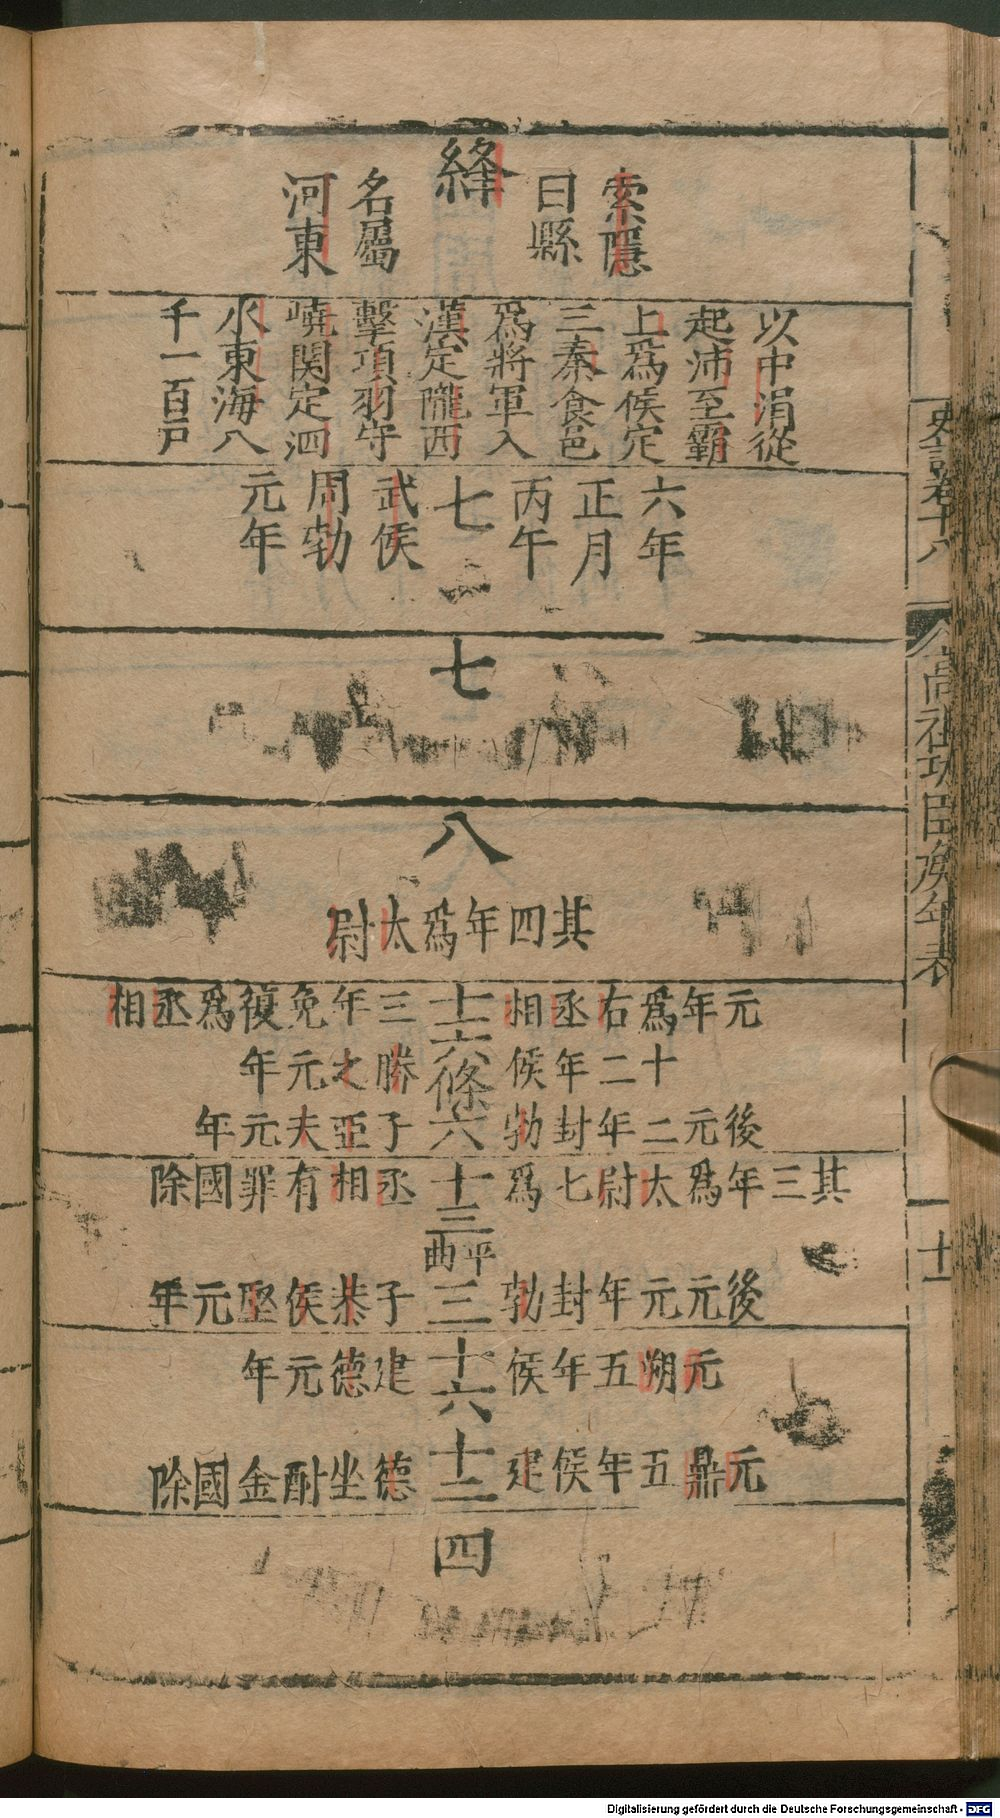 史記卷十八
高祖功臣侯年表
十一
絳
索隱
曰縣
名屬
河東
以中涓從
起沛至霸
上爲侯定
三秦食邑
爲將軍入
漢定隴西
擊項羽守
嶢関定泗
水東海八
千一百戸
六年
正月
丙午
七
武侯
周勃
元年
七
八
其四年爲太尉
元年爲右丞相
十一
三年免復爲丞相
十二年侯
六條
勝之元年
後元二年封勃
六
子亞夫元年
其三年爲太尉七爲
十三
丞相有罪國除
平曲
後元元年封勃
三
子恭侯堅元年
元朔五年侯
十六
建德元年
元鼎五年侯建
十二
德坐酎金國除
四
Digitalisierung gefördert durch die Deutsche Forschungsgemeinschaft - DFG